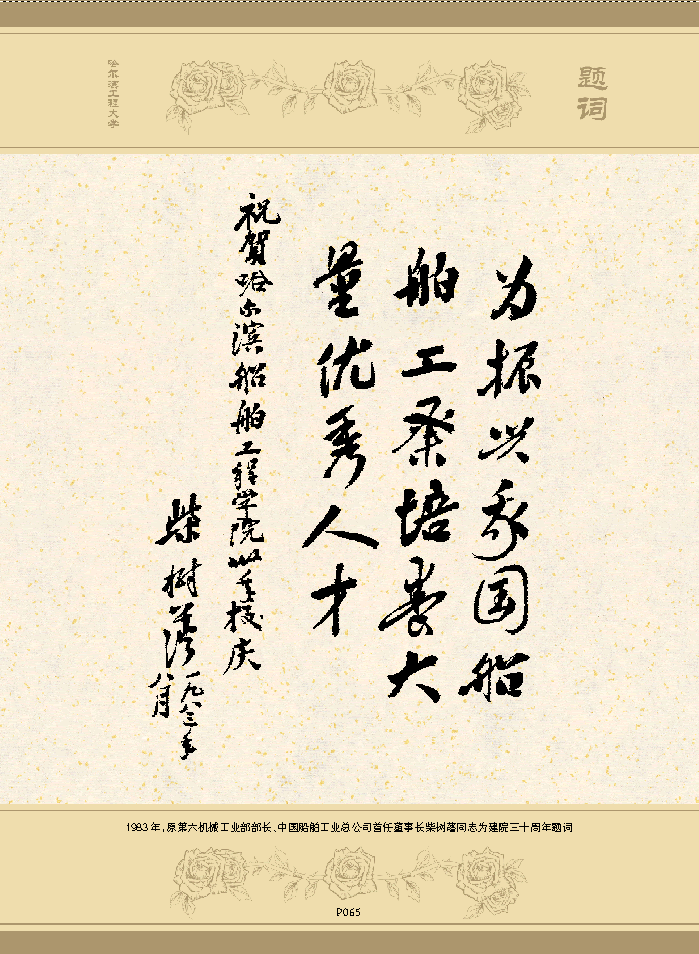 哈尔滨工程大学
题词
为振兴我国船
舶工业培养大
量优秀人才
祝贺哈尔滨船舶工程学院卅年校庆
柴树藩
一九八三年
八月
1983年，原第六机械工业部部长、中国船舶工业总公司首任董事长柴树藩同志为建院三十周年题词
P065